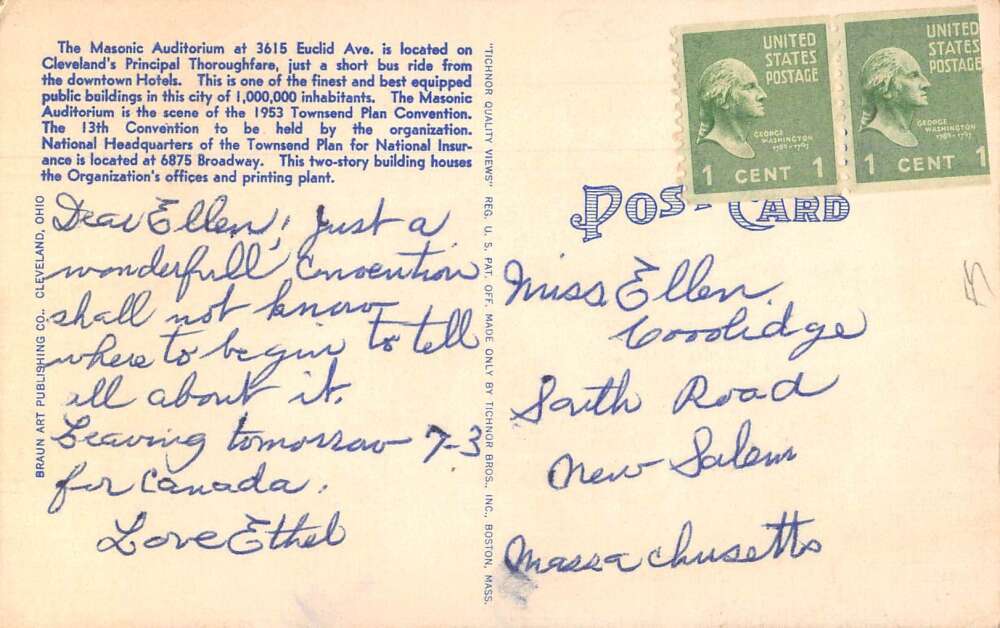 The Masonic Auditorium at 3615 Euclid Ave. is located on
Cleveland's Principal Thoroughfare, just a short bus ride from
the downtown Hotels. This is one of the finest and best equipped
public buildings in this city of 1,000,000 inhabitants. The Masonic
Auditorium is the scene of the 1953 Townsend Plan Convention.
The 13th Convention to be held by the organization.
National Headquarters of the Townsend Plan for National Insur-
ance is located at 6875 Broadway. This two-story building houses
the Organization's offices and printing plant.
BRAUN ART PUBLISHING CO., CLEVELAND, OHIO
Dear Ellen; Just a
wonderfull Convention
shall not know
where to begin to tell
all about it.
Leaving tomorrow 7-3
for Canada.
Love Ethel
"TICHNOR QUALITY VIEWS" REG. U. S. PAT. OFF. MADE ONLY BY TICHNOR BROS., INC., BOSTON, MASS.
UNITED
STATES
POSTAGE
GEORGE
WASHINGTON
1789-1797
1 CENT 1
UNITED
STATES
POSTAGE
GEORGE
WASHINGTON
1789-1797
1 CENT 1
POST CARD
Miss Ellen
Coolidge
South Road
New Salem
Massachusetts